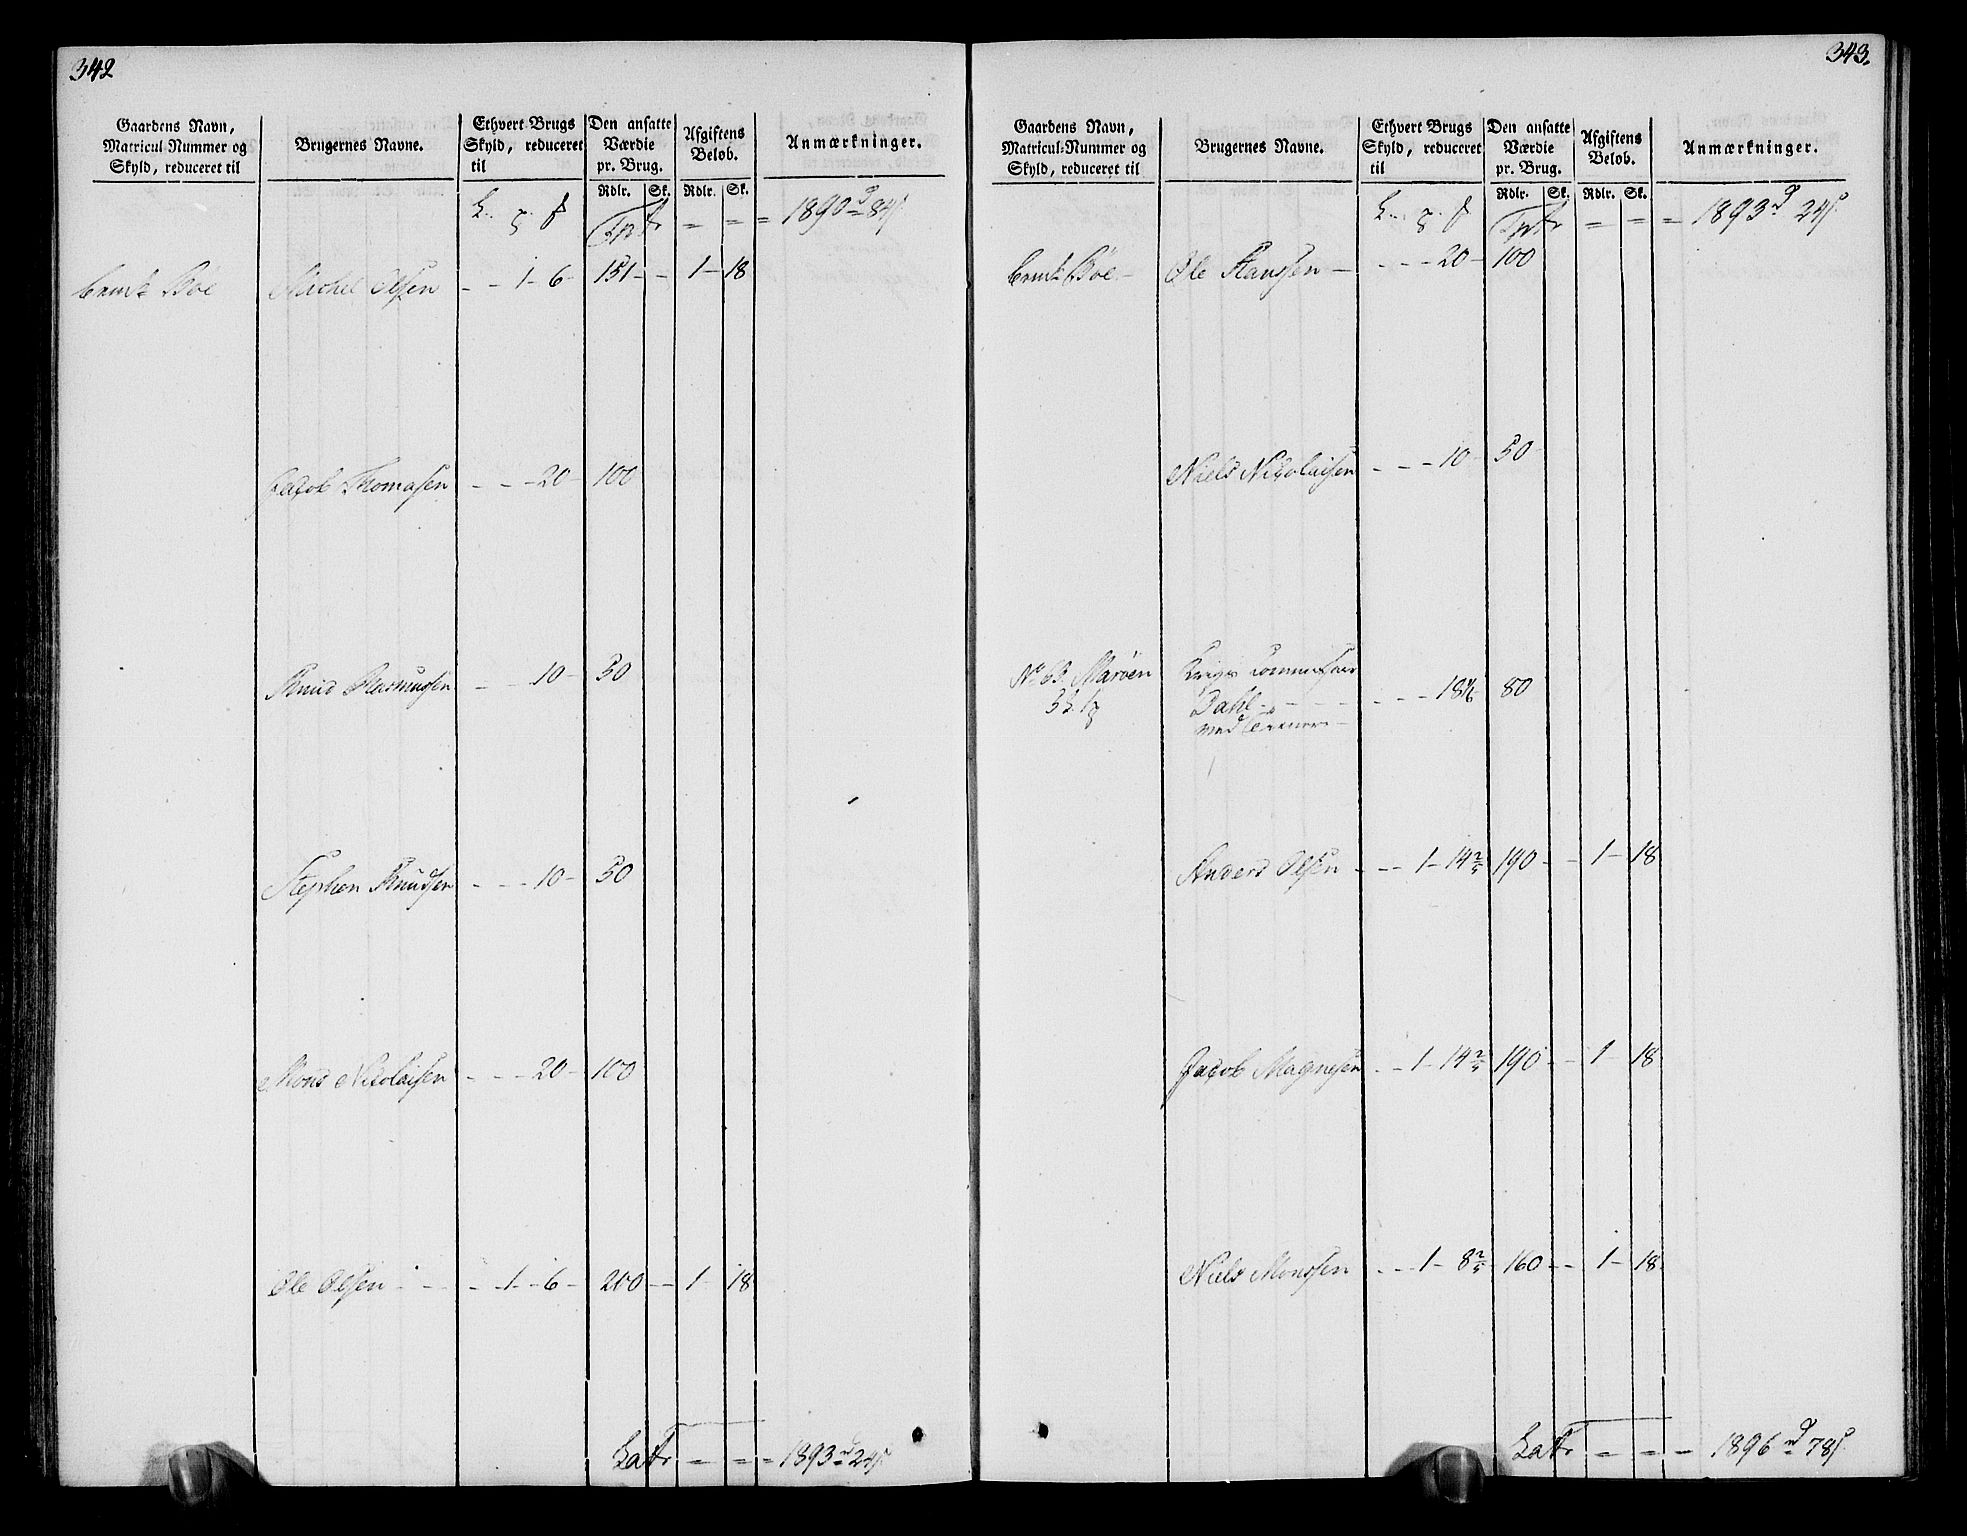 342
Gaardens Navn, Matricul-Nummer og Skyld, reduceret til
Brugernes Navne.
Ethvert Brugs Skyld, reduceret til
Den ansatte Værdie pr. Brug.
Afgiftens Beløb.
Anmærkninger.
Rdlr. Sk. Rdlr. Sk.
Tptr = = = 1890 d 84 s.
Bøe Michel Olsen - - 1 - 6 - 151 - - 1 - 18
Jacob Thomasen - - - 20 - 100
Knud Rasmussen - - 10 - 50
Stephen Knudsen - - - 10 - 50
Mons Nicolaisen - - - 20 - 100
Ole Olsen - - - 1 - 6 - 200 - - 1 - 18
Latr = = = 1893 d 24 s.
343.
Gaardens Navn, Matricul-Nummer og Skyld, reduceret til
Brugernes Navne.
Ethvert Brugs Skyld, reduceret til
Den ansatte Værdie pr. Brug.
Afgiftens Beløb.
Anmærkninger.
Rdlr. Sk. Rdlr. Sk.
Tptr = = = 1893 d 24 s.
Bøe - Ole Hanssen - - - - 20 - 100
Niels Nicolaisen - - - 10 - 50
No 63. Marøen Krigs Commissair
Dahl - - - - - 18 80
med
Anders Olsen - - - 1 - 14 2/5 190 - - 1 - 18
Jacob Magnesen - - 1 - 14 2/5 190 - - 1 - 18
Niels Monssen - - - 1 - 8 2/5 160 - - 1 - 18
Latr = = = 1896 d 78 s.